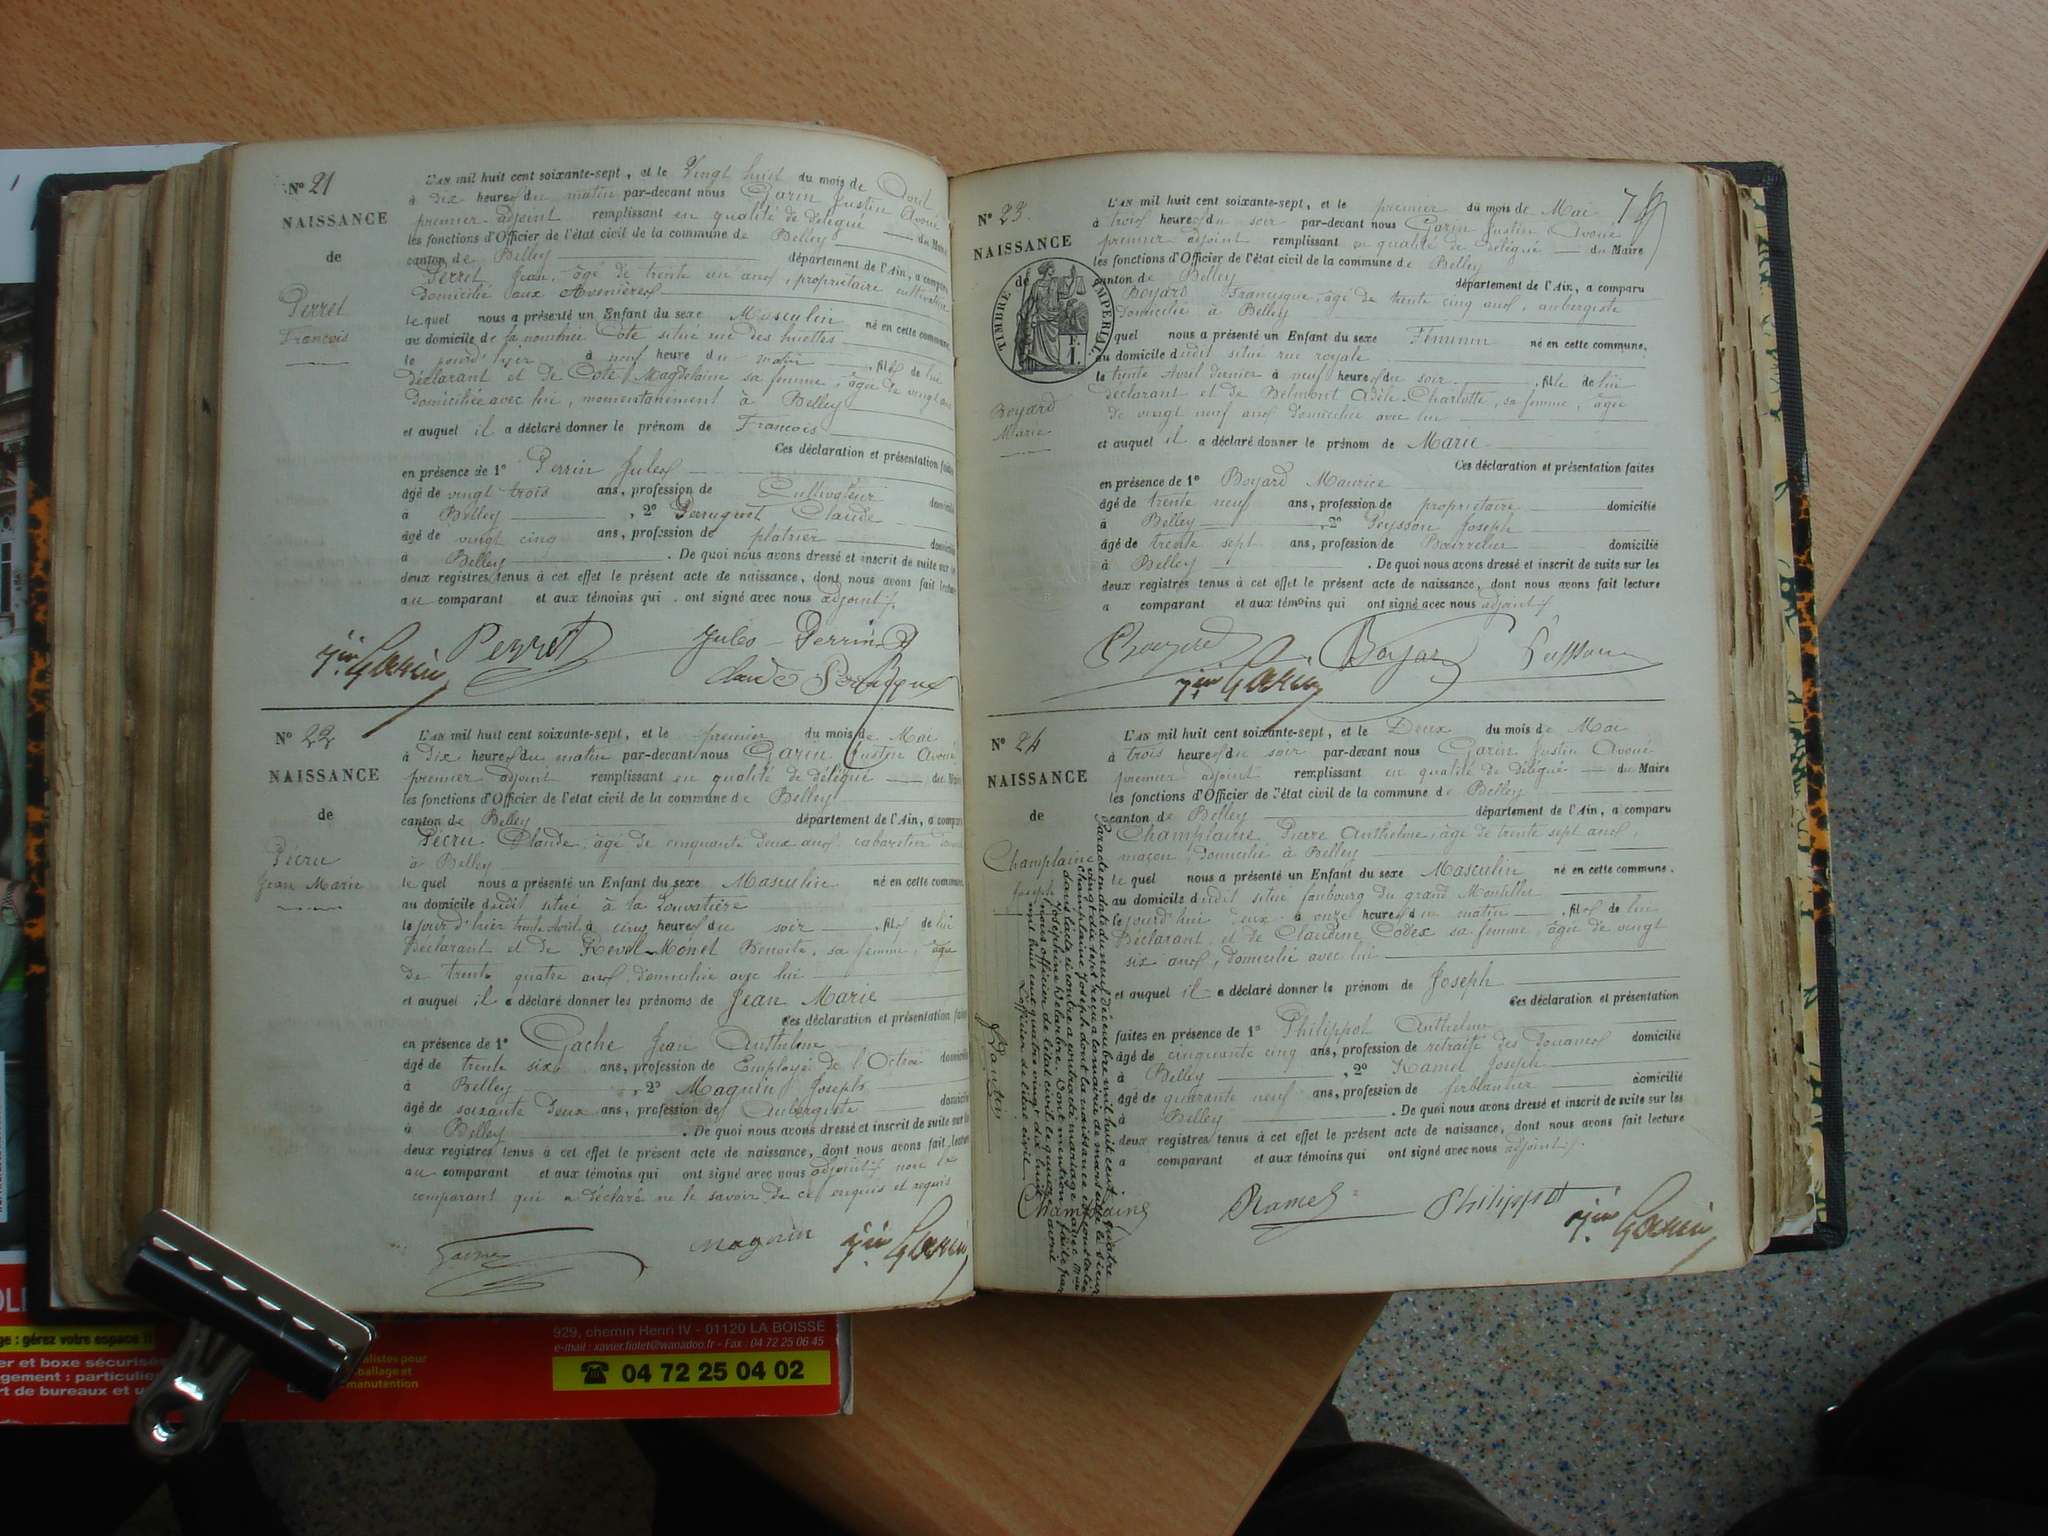 N° 21
NAISSANCE
de
Perret
François
L'AN mil huit cent soixante-sept, et le Vingt huit du mois de Avril
à dix heures du matin par-devant nous Garin Justin Avoué
premier adjoint remplissant en qualité de délégué du Maire
les fonctions d'Officier de l'état civil de la commune de Belley
canton de Belley département de l'Ain, a comparu
Perret Jean, âgé de trente un ans, propriétaire cultivateur
domicilié aux Avenières
le quel nous a présenté un Enfant du sexe Masculin né en cette commune,
au domicile de la nommée Cote situé rue des huettes
le jour d'hier à neuf heure du matin, fils de lui
déclarant et de Cote Magdelaine sa femme, âgée de vingt ans
domiciliée avec lui, momentanément à Belley
et auquel il a déclaré donner le prénom de François
Ces déclaration et présentation faites
en présence de 1° Perrin Jules
âgé de vingt trois ans, profession de Cultivateur domicilié
à Belley, 2° Claude
âgé de vingt cinq ans, profession de platrier domicilié
à Belley. De quoi nous avons dressé et inscrit de suite sur les
deux registres tenus à cet effet le présent acte de naissance, dont nous avons fait lecture
au comparant et aux témoins qui ont signé avec nous adjoint.
Jin Garin Perret Jules Perrin
Claude
N° 22
NAISSANCE
de
Pécru
Jean Marie
L'AN mil huit cent soixante-sept, et le premier du mois de Mai
à Dix heures du matin par-devant nous Garin Justin Avoué
premier adjoint remplissant en qualité de délégué du Maire
les fonctions d'Officier de l'état civil de la commune de Belley
canton de Belley département de l'Ain, a comparu
Pécru Claude, âgé de cinquante deux ans, cabaretier
à Belley
le quel nous a présenté un Enfant du sexe Masculin né en cette commune,
au domicile dudit situé à la Louvatière
le jour d'hier trente Avril à cinq heures du soir, fils de lui
Déclarant et de Revel-Monet Benoite, sa femme, âgée
de trente quatre ans, domiciliée avec lui
et auquel il a déclaré donner les prénoms de Jean Marie
Ces déclaration et présentation faites
en présence de 1° Gache Jean Anthelme
âgé de trente six ans, profession de Employé de l'Octroi domicilié
à Belley, 2° Magnin Joseph
âgé de soixante deux ans, profession de Aubergiste domicilié
à Belley. De quoi nous avons dressé et inscrit de suite sur les
deux registres tenus à cet effet le présent acte de naissance, dont nous avons fait lecture
au comparant et aux témoins qui ont signé avec nous adjoint non le
comparant qui a déclaré ne le savoir de ce enquis et requis
Gache Magnin Jin Garin
N° 23.
NAISSANCE
de
TIMBRE IMPERIAL
F. I.
Boyard
Marie
7
L'AN mil huit cent soixante-sept, et le premier du mois de Mai
à trois heures du soir par-devant nous Garin Justin Avoué
premier adjoint remplissant en qualité de délégué du Maire
les fonctions d'Officier de l'état civil de la commune de Belley
canton de Belley département de l'Ain, a comparu
Boyard Francisque, âgé de trente cinq ans, aubergiste
domicilié à Belley
quel nous a présenté un Enfant du sexe Féminin né en cette commune,
au domicile dudit situé rue royale
le trente Avril dernier à neuf heures du soir, fille de lui
déclarant et de Belmont Adèle Charlotte, sa femme, âgée
de vingt neuf ans domiciliée avec lui
et auquel il a déclaré donner le prénom de Marie
Ces déclaration et présentation faites
en présence de 1° Boyard Maurice
âgé de trente neuf ans, profession de propriétaire domicilié
à Belley, 2° Peysson Joseph
âgé de trente sept ans, profession de Bourrelier domicilié
à Belley. De quoi nous avons dressé et inscrit de suite sur les
deux registres tenus à cet effet le présent acte de naissance, dont nous avons fait lecture
a comparant et aux témoins qui ont signé avec nous adjoint
Boyard Boyard Peysson
Jin Garin
N° 24
NAISSANCE
de
Champlaine
Joseph
Par acte en date du neuf Décembre mil huit cent quatre
vingt dix sept reçu à la mairie de le sieur
Champlaine Joseph dont la naissance est constatée
dans l'acte ci contre a contracté mariage avec
Joséphine Delarbre. Dont mention faite par
nous officier de l'état civil le quinze avril
mil huit cent quatre vingt dix huit
L'officier de l'état civil
L'AN mil huit cent soixante-sept, et le Deux du mois de Mai
à trois heures du soir par-devant nous Garin Justin Avoué
premier adjoint remplissant en qualité de délégué du Maire
les fonctions d'Officier de l'état civil de la commune de Belley
canton de Belley département de l'Ain, a comparu
Champlaine Pierre Anthelme, âgé de trente sept ans,
maçon, domicilié à Belley
le quel nous a présenté un Enfant du sexe Masculin né en cette commune,
au domicile dudit situé faubourg du grand
le jourd'hui deux à onze heures du matin, fils de lui
Déclarant et de Claudine Codex sa femme, âgée de vingt
six ans, domicilié avec lui
et auquel il a déclaré donner le prénom de Joseph
Ces déclaration et présentation
faites en présence de 1° Philippot Anthelme
âgé de cinquante cinq ans, profession de retraité des Douanes domicilié
à Belley, 2° Ramel Joseph
âgé de quarante neuf ans, profession de ferblantier domicilié
à Belley. De quoi nous avons dressé et inscrit de suite sur les
deux registres tenus à cet effet le présent acte de naissance, dont nous avons fait lecture
a comparant et aux témoins qui ont signé avec nous adjoint.
Champlaine Ramel Philippot Jin Garin
929, chemin Henri IV - 01120 LA BOISSE
e-mail : xavier.fiolet@wanadoo.fr - Fax : 04 72 25 06 45
☎ 04 72 25 04 02
ge : gérez votre espace !!
er et boxe sécurisé
gement : particulier
rt de bureaux et u
alistes pour
ballage et
manutention